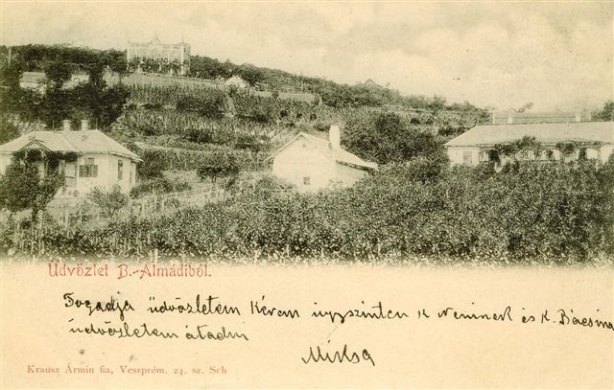 Üdvözlet B.-Almádiból.
Fogadja üdvözletem Kérem K Neninek és K. Bácsina
üdvözletem átadni
Miksa
Krausz Ármin fia, Veszprém. 24. sz. Sch